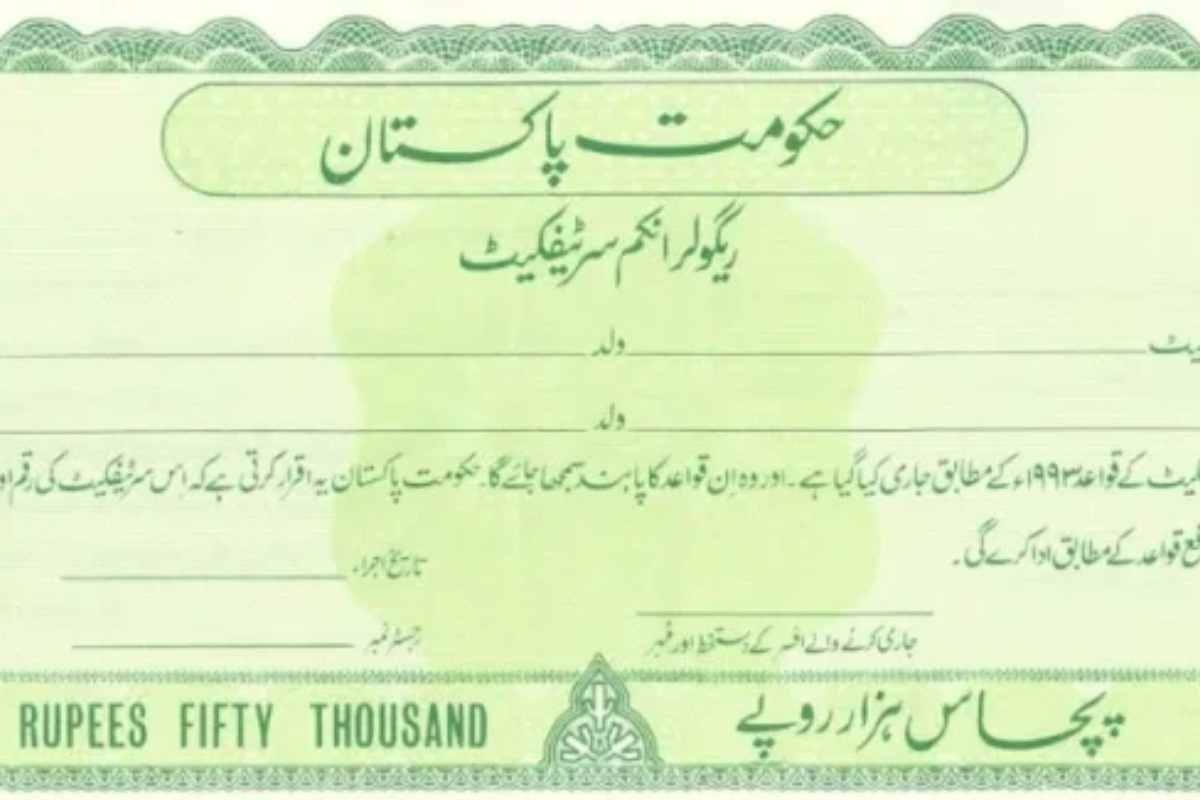 حکومت پاکستان
ریگولر انکم سرٹیفکیٹ
ولد
ولد
کے قواعد ۱۹۹۳ء کے مطابق جاری کیا گیا ہے۔ اور وہ اِن قواعد کا پابند سمجھا جائے گا۔ حکومت پاکستان یہ اقرار کرتی ہے کہ اِس سرٹیفکیٹ کی رقم
قواعد کے مطابق ادا کرے گی۔
تاریخ اجراء
جاری کرنے والے افسر کے دستخط اور مُہر
رجسٹر نمبر
پچاس ہزار روپے
RUPEES FIFTY THOUSAND